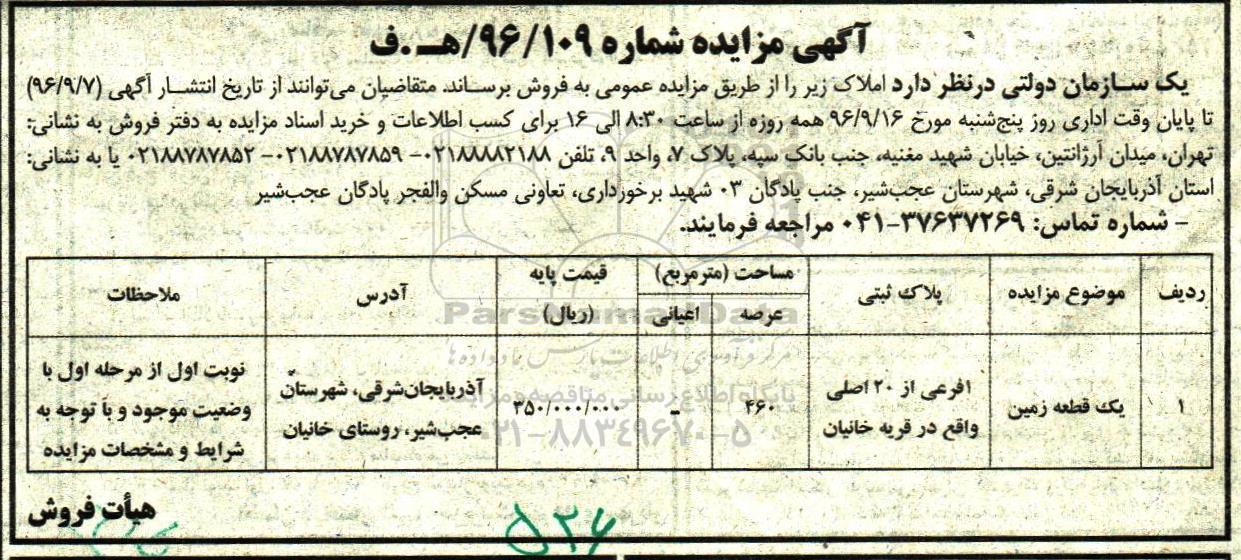 آگهی مزایده شماره ۹۶/۱۰۹/هـ.ف
یک سازمان دولتی درنظر دارد املاک زیر را از طریق مزایده عمومی به فروش برساند. متقاضیان می‌توانند از تاریخ انتشار آگهی (۹۶/۹/۷)
تا پایان وقت اداری روز پنج‌شنبه مورخ ۹۶/۹/۱۶ همه روزه از ساعت ۸:۳۰ الی ۱۶ برای کسب اطلاعات و خرید اسناد مزایده به دفتر فروش به نشانی:
تهران، میدان آرژانتین، خیابان شهید مغنیه، جنب بانک سپه، پلاک ۷، واحد ۹، تلفن ۰۲۱۸۸۸۸۲۱۸۸- ۰۲۱۸۸۷۸۷۸۵۹- ۰۲۱۸۸۷۸۷۸۵۲ یا به نشانی:
استان آذربایجان شرقی، شهرستان عجب‌شیر، جنب پادگان ۰۳ شهید برخورداری، تعاونی مسکن والفجر پادگان عجب‌شیر
- شماره تماس: ۳۷۶۳۷۲۶۹-۰۴۱ مراجعه فرمایند.
ردیف موضوع مزایده پلاک ثبتی مساحت (مترمربع) عرصه اعیانی قیمت پایه (ریال) آدرس ملاحظات
۱ یک قطعه زمین
۱فرعی از ۲۰ اصلی
واقع در قریه خانیان
۴۶۰ - ۳۵۰/۰۰۰/۰۰۰
آذربایجان‌شرقی، شهرستان
عجب‌شیر، روستای خانیان
نوبت اول از مرحله اول با
وضعیت موجود و با توجه به
شرایط و مشخصات مزایده
هیأت فروش
ParsNamadData
پایگاه اطلاع رسانی مناقصه و مزایده
۰۲۱-۸۸۳۴۹۶۷۰-۵
۵۲۶